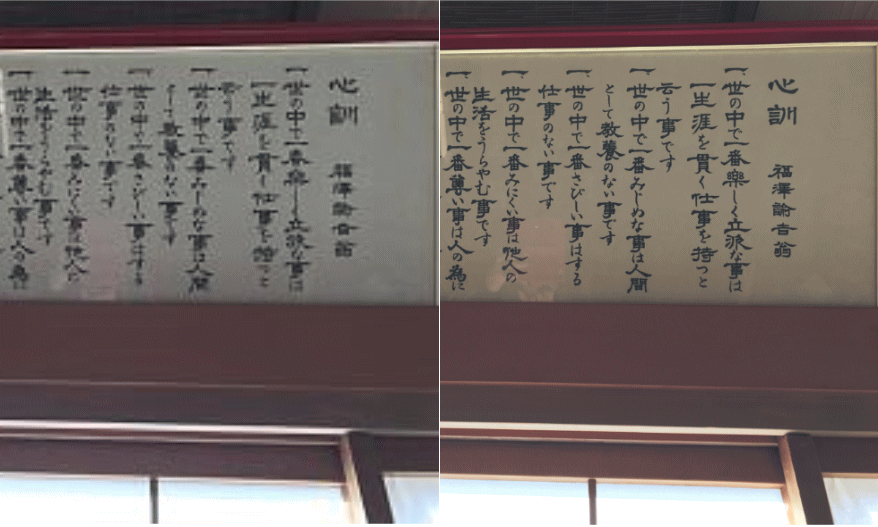 心訓　福澤諭吉翁
一、世の中で一番楽しく立派な事は
一生涯を貫く仕事を持つと
云う事です
一、世の中で一番みじめな事は人間
として教養のない事です
一、世の中で一番さびしい事はする
仕事のない事です
一、世の中で一番みにくい事は他人の
生活をうらやむ事です
一、世の中で一番尊い事は人の為に
心訓　福澤諭吉翁
一、世の中で一番楽しく立派な事は
一生涯を貫く仕事を持つと
云う事です
一、世の中で一番みじめな事は人間
として教養のない事です
一、世の中で一番さびしい事はする
仕事のない事です
一、世の中で一番みにくい事は他人の
生活をうらやむ事です
一、世の中で一番尊い事は人の為に